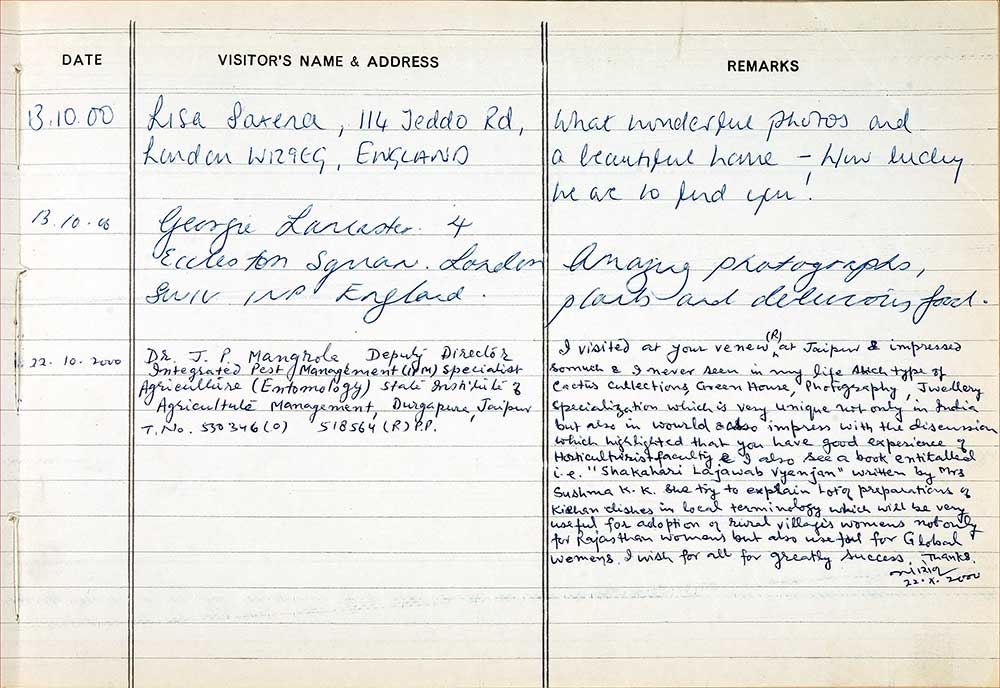 DATE
VISITOR'S NAME & ADDRESS
REMARKS
13.10.00
Lisa Saxena, 114 Jeddo Rd,
London W129EG, ENGLAND
What wonderful photos and
a beautiful home - How lucky
we are to find you!
13.10.00
Georgie Lancaster. 4
Eccleston Square. London
SW1V 1NP England.
Amazing photographs,
plants and delicious food.
22.10.2000
Dr. J. P. Mangrola, Deputy Director
Integrated Pest Management (IPM) Specialist
Agriculture (Entomology) State Institute of
Agriculture Management, Durgapura, Jaipur
T. No. 530346 (O) 518564 (R) P.P.
I visited at your venew (R) at Jaipur & impressed
somuch & I never seen in my life such type of
Cactus collections, Green House, Photography, Jwellery
Specialization which is very unique not only in India
but also in wourld & also impress with the discussion
which highlighted that you have good experience of
Horticulturist faculty & I also see a book entitalled
i.e. "Shakahari Lajawab Vyanjan" written by Mrs
Sushma K. K. She try to explain lot of preparations of
Kichan dishes in local terminology which will be very
useful for adoption of rural villages womens not only
for Rajasthan womens but also useful for Global
womens. I wish for all for greatly success. Thanks.
22.X.2000